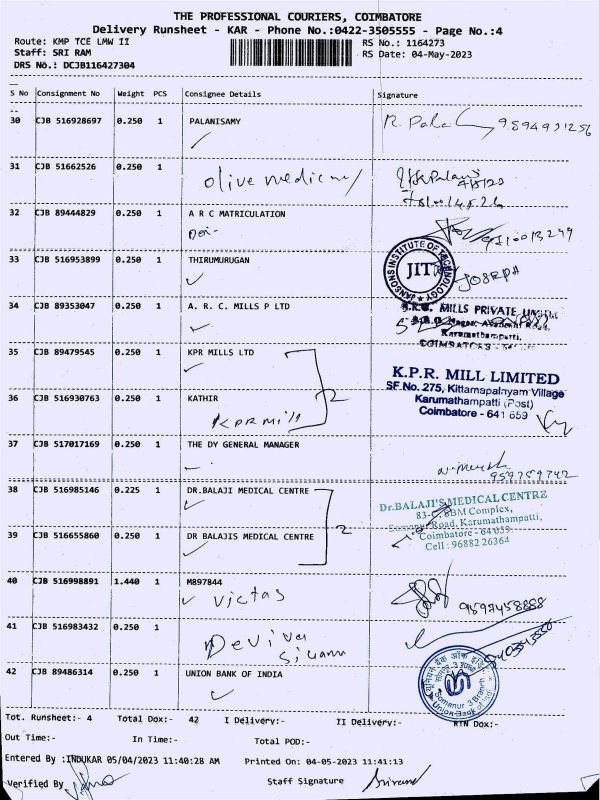 THE PROFESSIONAL COURIERS, COIMBATORE
Delivery Runsheet - KAR - Phone No.:0422-3505555 - Page No.:4
Route: KMP TCE LMW II
RS No.: 1164273
Staff: SRI RAM
RS Date: 04-May-2023
DRS No.: DCJB116427304
S No Consignment No Weight PCS Consignee Details Signature
30 CJB 516928697 0.250 1 PALANISAMY
31 CJB 51662526 0.250 1
olive medicm
32 CJB 89444829 0.250 1 A R C MATRICULATION
33 CJB 516953899 0.250 1 THIRUMURUGAN
JANSONS INSTITUTE OF TECHNOLOGY
JIT
JOSEPH
34 CJB 89353047 0.250 1 A. R. C. MILLS P LTD
MILLS PRIVATE LIMITED
Karumathampatti,
COIMBATORE -
35 CJB 89479545 0.250 1 KPR MILLS LTD
2
K.P.R. MILL LIMITED
SF.No. 275, Kittampalayam Village
Karumathampatti (Post)
Coimbatore - 641 659
36 CJB 516930763 0.250 1 KATHIR
KPR Mill
37 CJB 517017169 0.250 1 THE DY GENERAL MANAGER
38 CJB 516985146 0.225 1 DR.BALAJI MEDICAL CENTRE
2
Dr.BALAJI'S MEDICAL CENTRE
83- BBM Complex,
Road, Karumathampatti,
Coimbatore - 64 659
Cell : 96882 26364
39 CJB 516655860 0.250 1 DR BALAJIS MEDICAL CENTRE
40 CJB 516998891 1.440 1 M897844
Victas
9597458888
41 CJB 516983432 0.250 1
Devive
Sivam
42 CJB 89486314 0.250 1 UNION BANK OF INDIA
Somanur Branch
Union Bank of
Tot. Runsheet:- 4 Total Dox:- 42 I Delivery:- II Delivery:- RTN Dox:-
Out Time:- In Time:- Total POD:-
Entered By :INDUKAR 05/04/2023 11:40:28 AM Printed On: 04-05-2023 11:41:13
Verified By Staff Signature